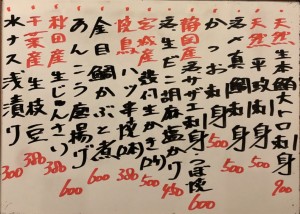 天然 生本鮪大トロ刺身 900
天然 平政刺身 500
活〆真鯛刺身 500
かつお刺身 500
静岡産 活サザエ刺身 つぼ焼 600
活生だこ胡麻塩かり 480
宮城産 殻付生かき(1ケ) 500
焼鳥 ハツ串焼(2本) 380
金目鯛かぶと煮 600
あんこう唐揚げ 600
秋田産 生じゅんさい 380
千葉産 生枝豆 380
水ナス浅漬け 300